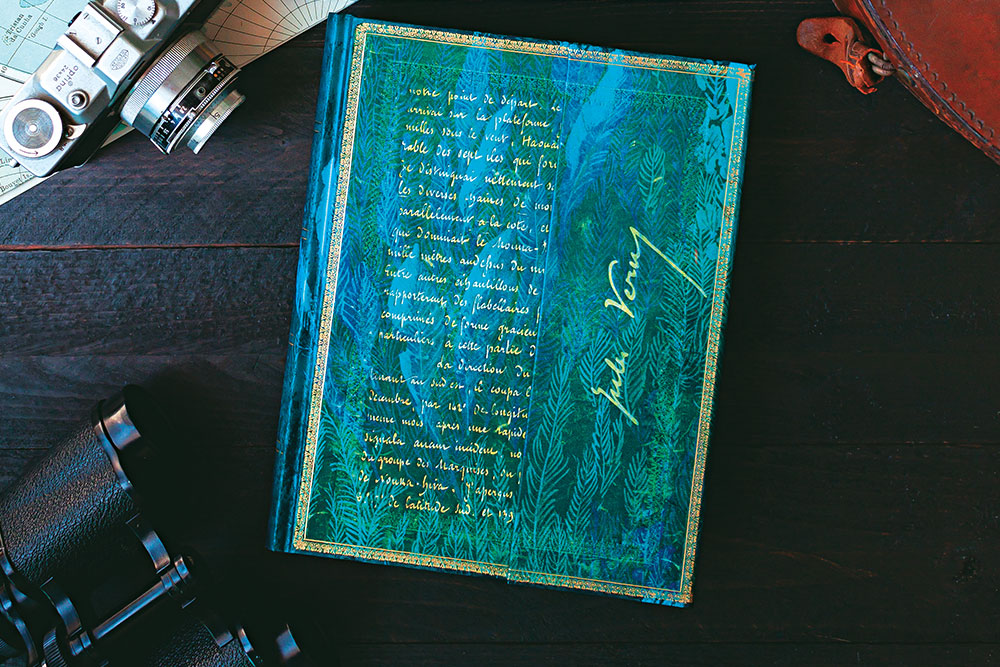 notre point de départ. Je
arrivai sur la plateforme
milles sous le vent, Haouaï
rable des sept iles qui for
Je distinguai nettement sa
les diverses chaines de mo
parallèlement à la côte, et
qui dominait le Mouna-
mille mètres audessus du ni
Entre autres échantillons de
rapportèrent des flabellaires
comprimés de forme gracieu
particuliers à cette partie d
La direction du
tinant au sud est, il coupa l
décembre, par 142° de longitu
même mois, après une rapide
signala aucun incident, no
du groupe des Marquises, Du
de Nouka-hiva. J'aperçus
de latitude sud, et 139
Jules Verne
optina
24x36
Tristan
da Cunha
Gough I.
Bouvet